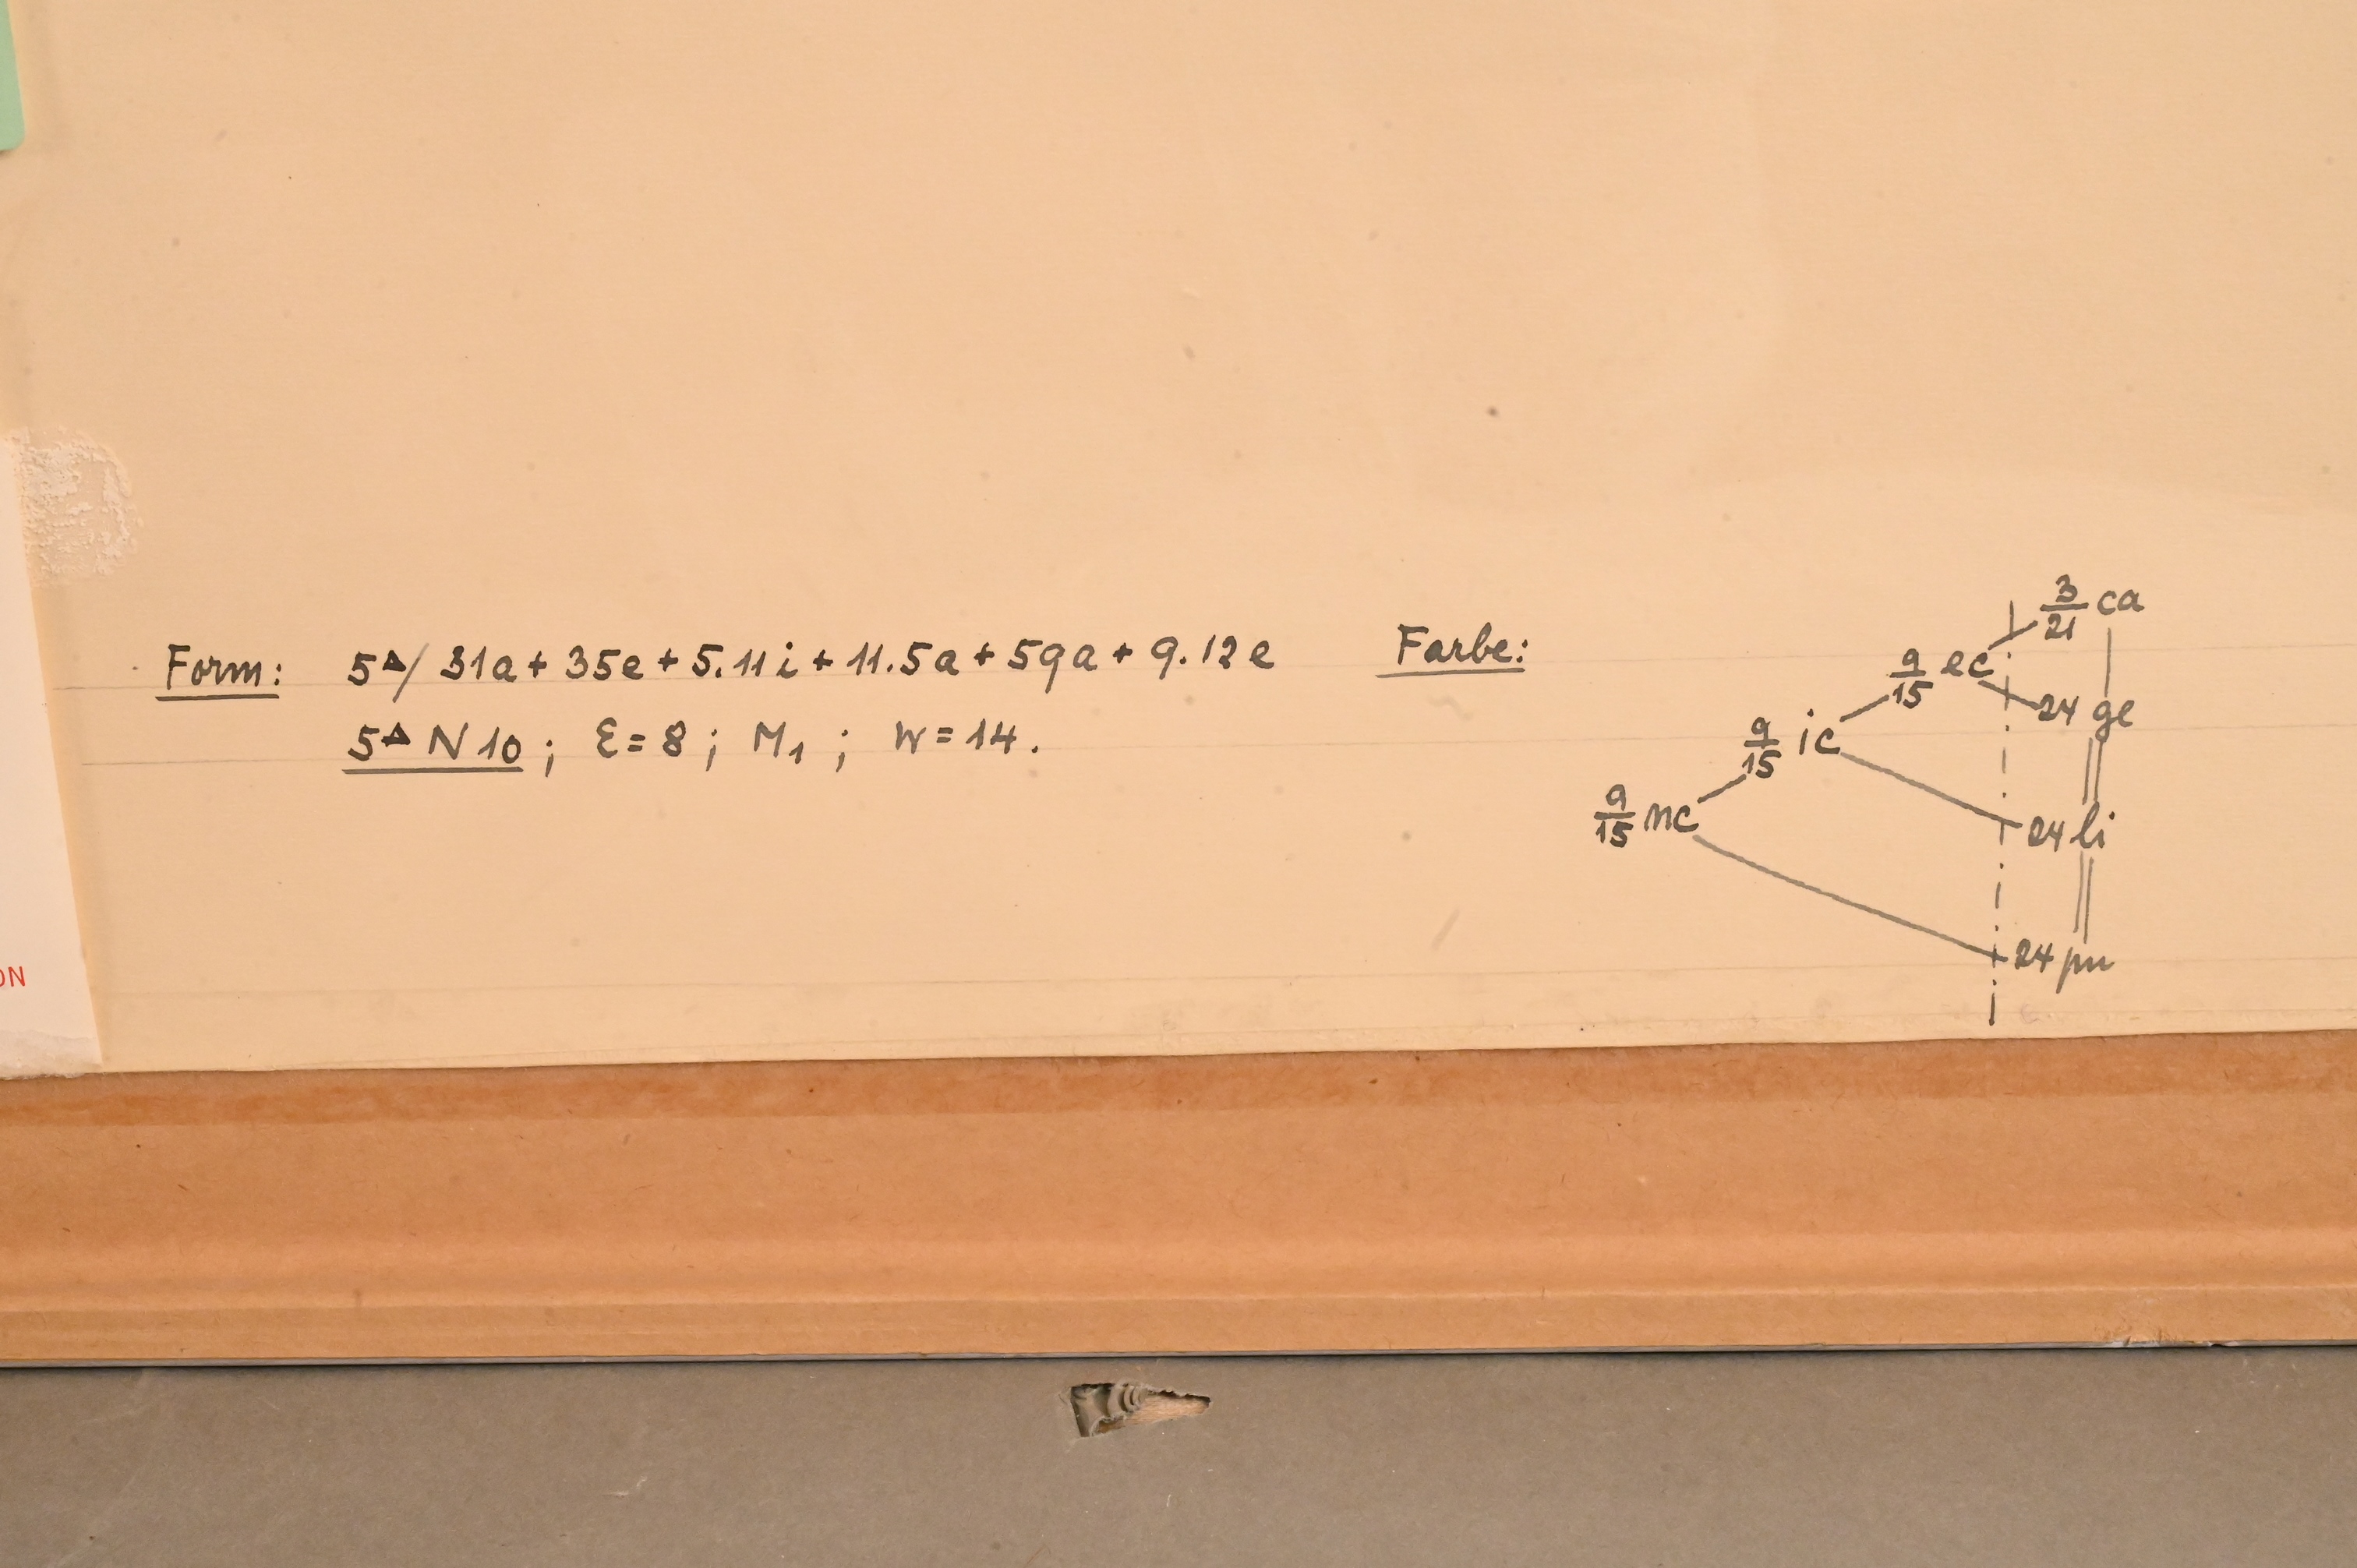 Form: 5▲/ 31a + 35e + 5.11i + 11.5a + 59a + 9.12e
5▲ N10 ; Ɛ=8 ; M₁ ; W=14.
Farbe:
3/21 ca
9/15 ec
24 ge
9/15 ic
9/15 nc
24 li
24 pu
ON